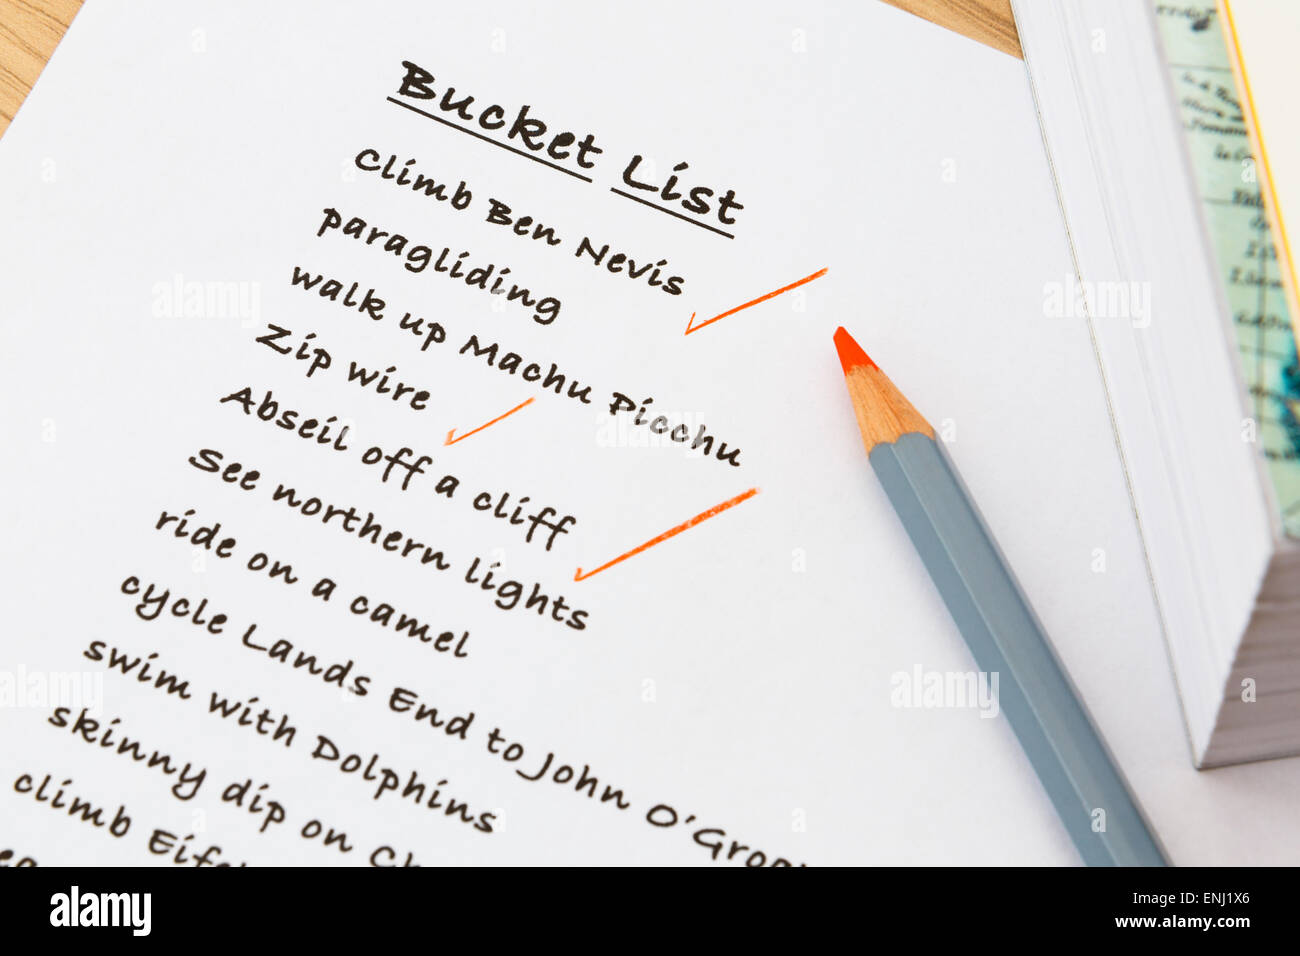 Bucket List
Climb Ben Nevis
paragliding
walk up Machu Picchu
Zip wire
Abseil off a cliff
See northern lights
ride on a camel
cycle Lands End to John O'Groo
swim with Dolphins
skinny dip on
climb
alamy
www.alamy.com
Image ID: ENJ1X6